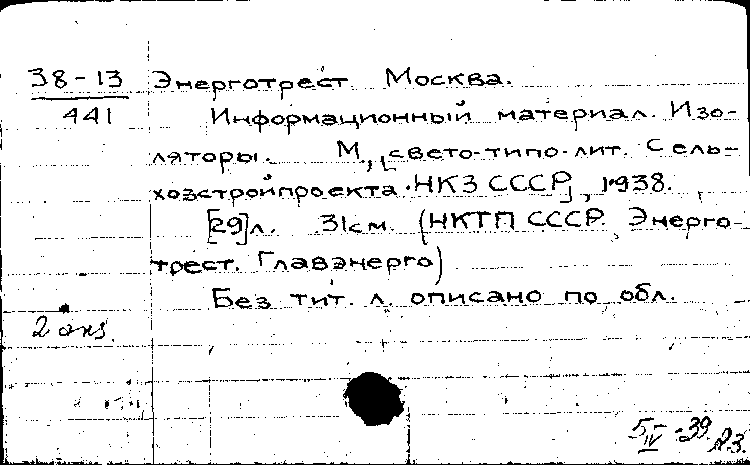 38-13 Энерготрест Москва.
441 Информационный материал. Изо-
ляторы. М., [свето-типо-лит. Сель-
хозстройпроекта НКЗ СССР], 1938.
[29]л. 31см. (НКТП СССР. Энерго-
трест. Главэнерго)
Без тит. л. описано по обл.
2 экз.
5/IV-39